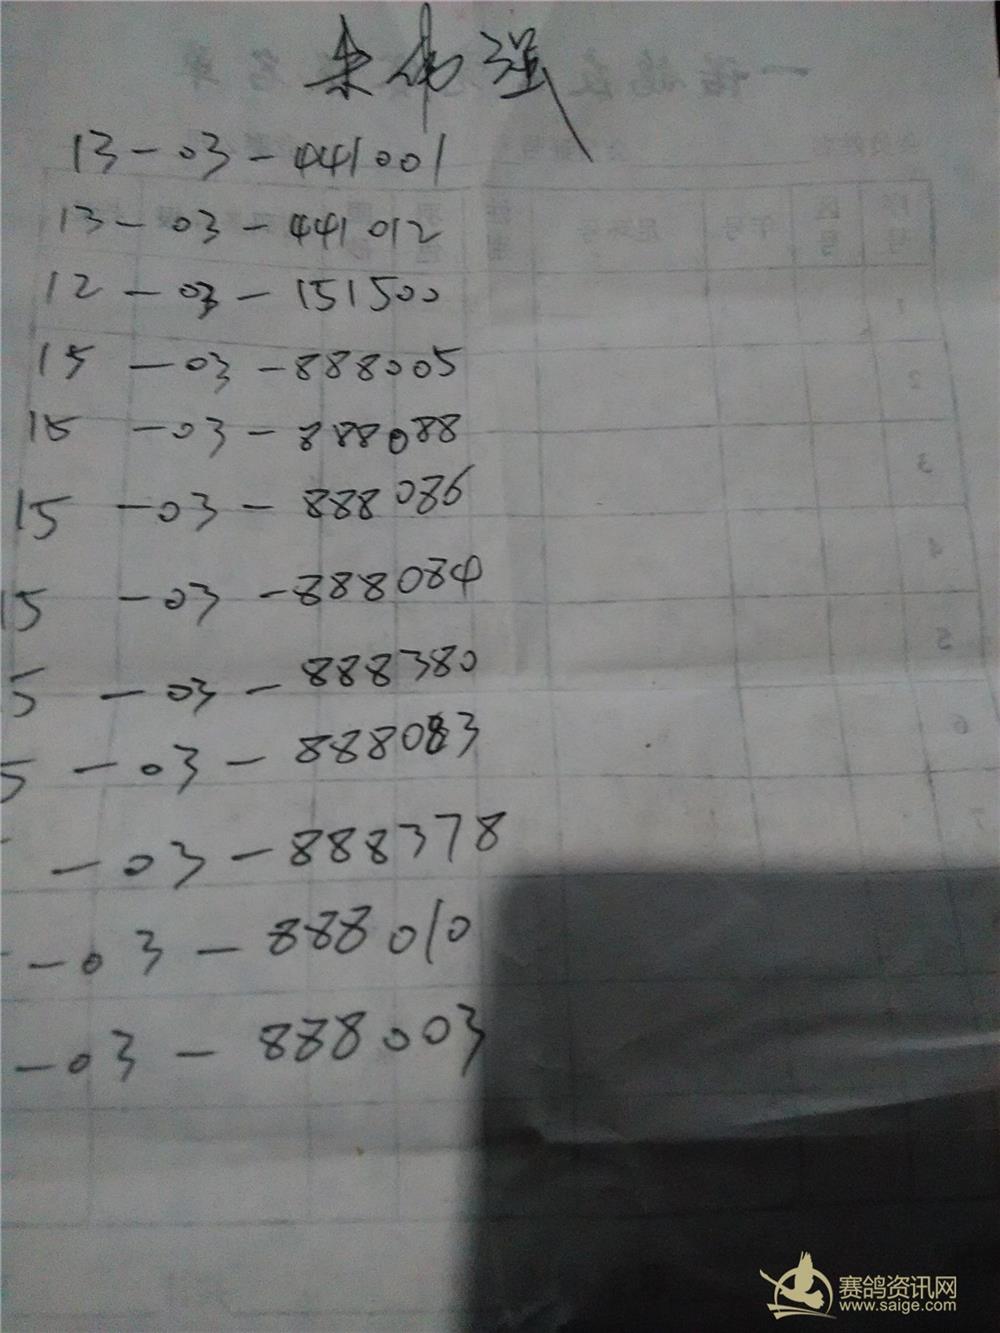 强
13-03-441001
13-03-441012
12-03-151500
15-03-888005
15-03-888088
15-03-888086
15-03-888084
5-03-888380
5-03-888083
-03-888378
-03-888010
-03-888003
赛鸽资讯网
www.saige.com